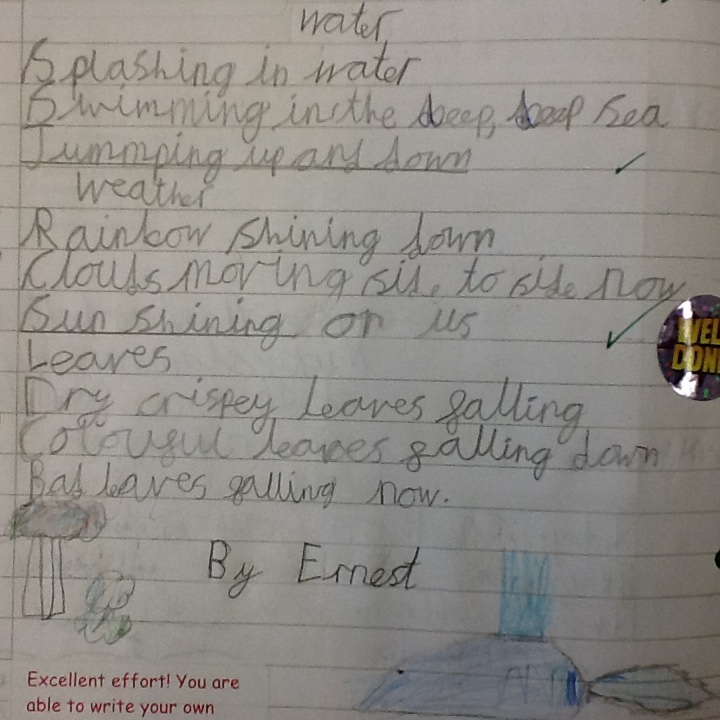 water
Splashing in water
Swimming in the deep, deep sea
Jummping up and down
Weather
Rainbow shining down
Clouds moving side to side now
Sun shining on us
Leaves
Dry crispey leaves falling
leaves falling down
Bad leaves falling now.
By Ernest
WEL
DON
Excellent effort! You are
able to write your own